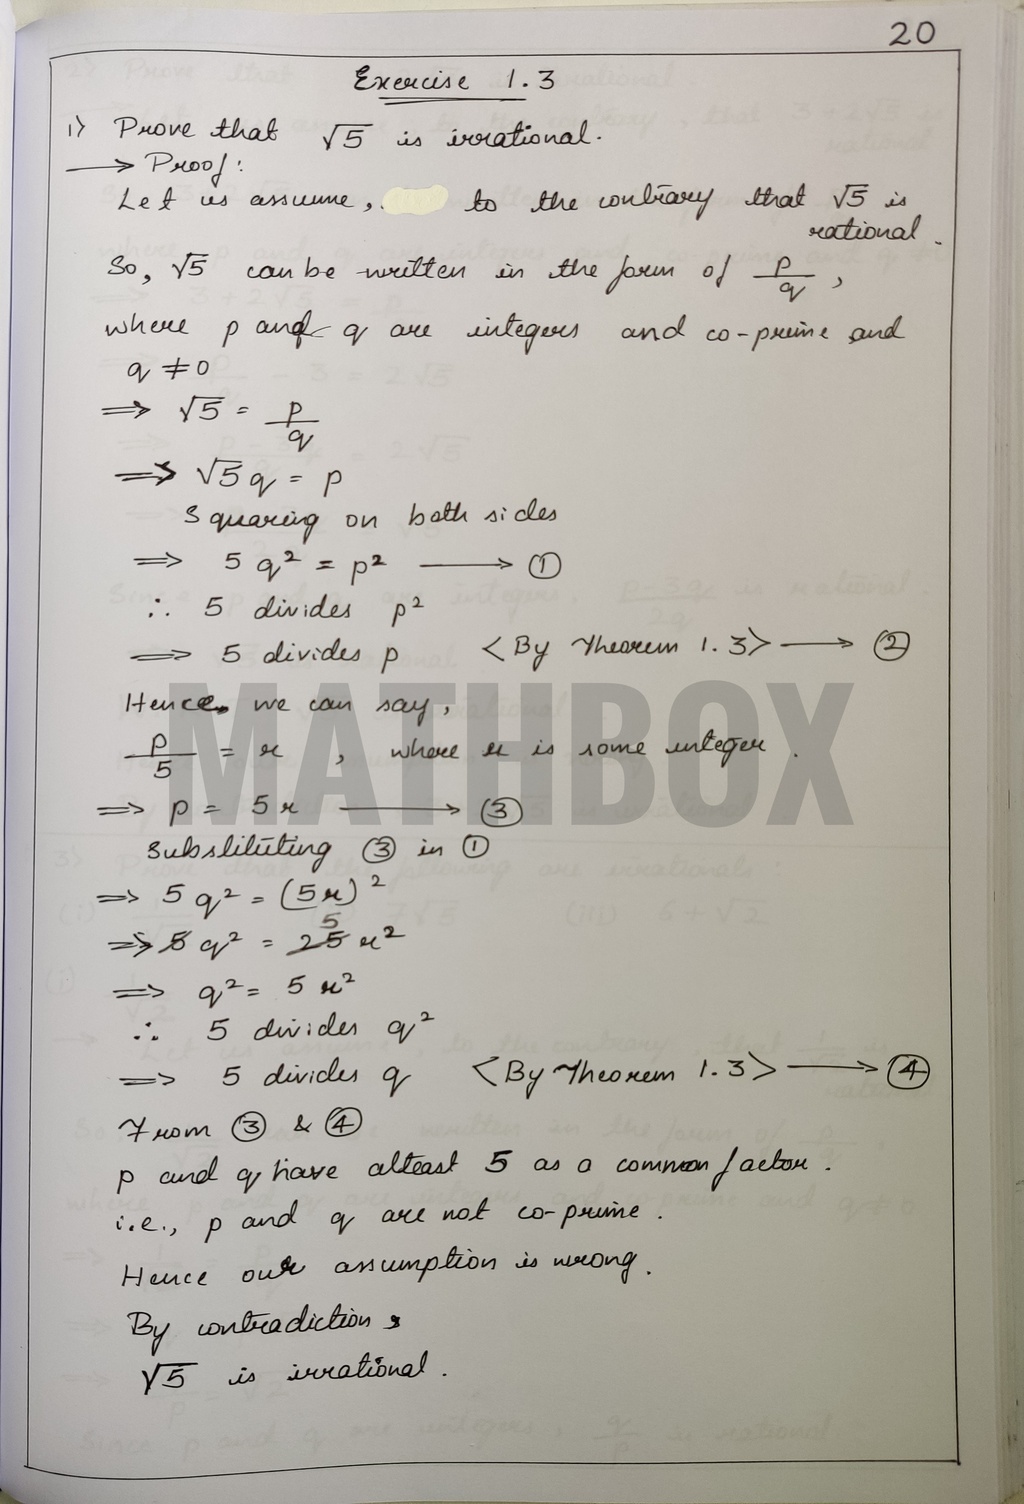 20
Exercise 1.3
1) Prove that √5 is irrational.
→ Proof:
Let us assume, to the contrary that √5 is
rational.
So, √5 can be written in the form of p/q,
where p and q are integers and co-prime and
q ≠ 0
⇒ √5 = p/q
⇒ √5 q = p
Squaring on both sides
⇒ 5q² = p² → ①
∴ 5 divides p²
⇒ 5 divides p <By Theorem 1.3> → ②
Hence we can say,
p/5 = r, where r is some integer.
⇒ p = 5r → ③
Substituting ③ in ①
⇒ 5q² = (5r)²
5
⇒ 5q² = 25r²
⇒ q² = 5r²
∴ 5 divides q²
⇒ 5 divides q <By Theorem 1.3> → ④
From ③ & ④
p and q have atleast 5 as a common factor.
i.e., p and q are not co-prime.
Hence our assumption is wrong.
By contradiction,
√5 is irrational.
MATHBOX